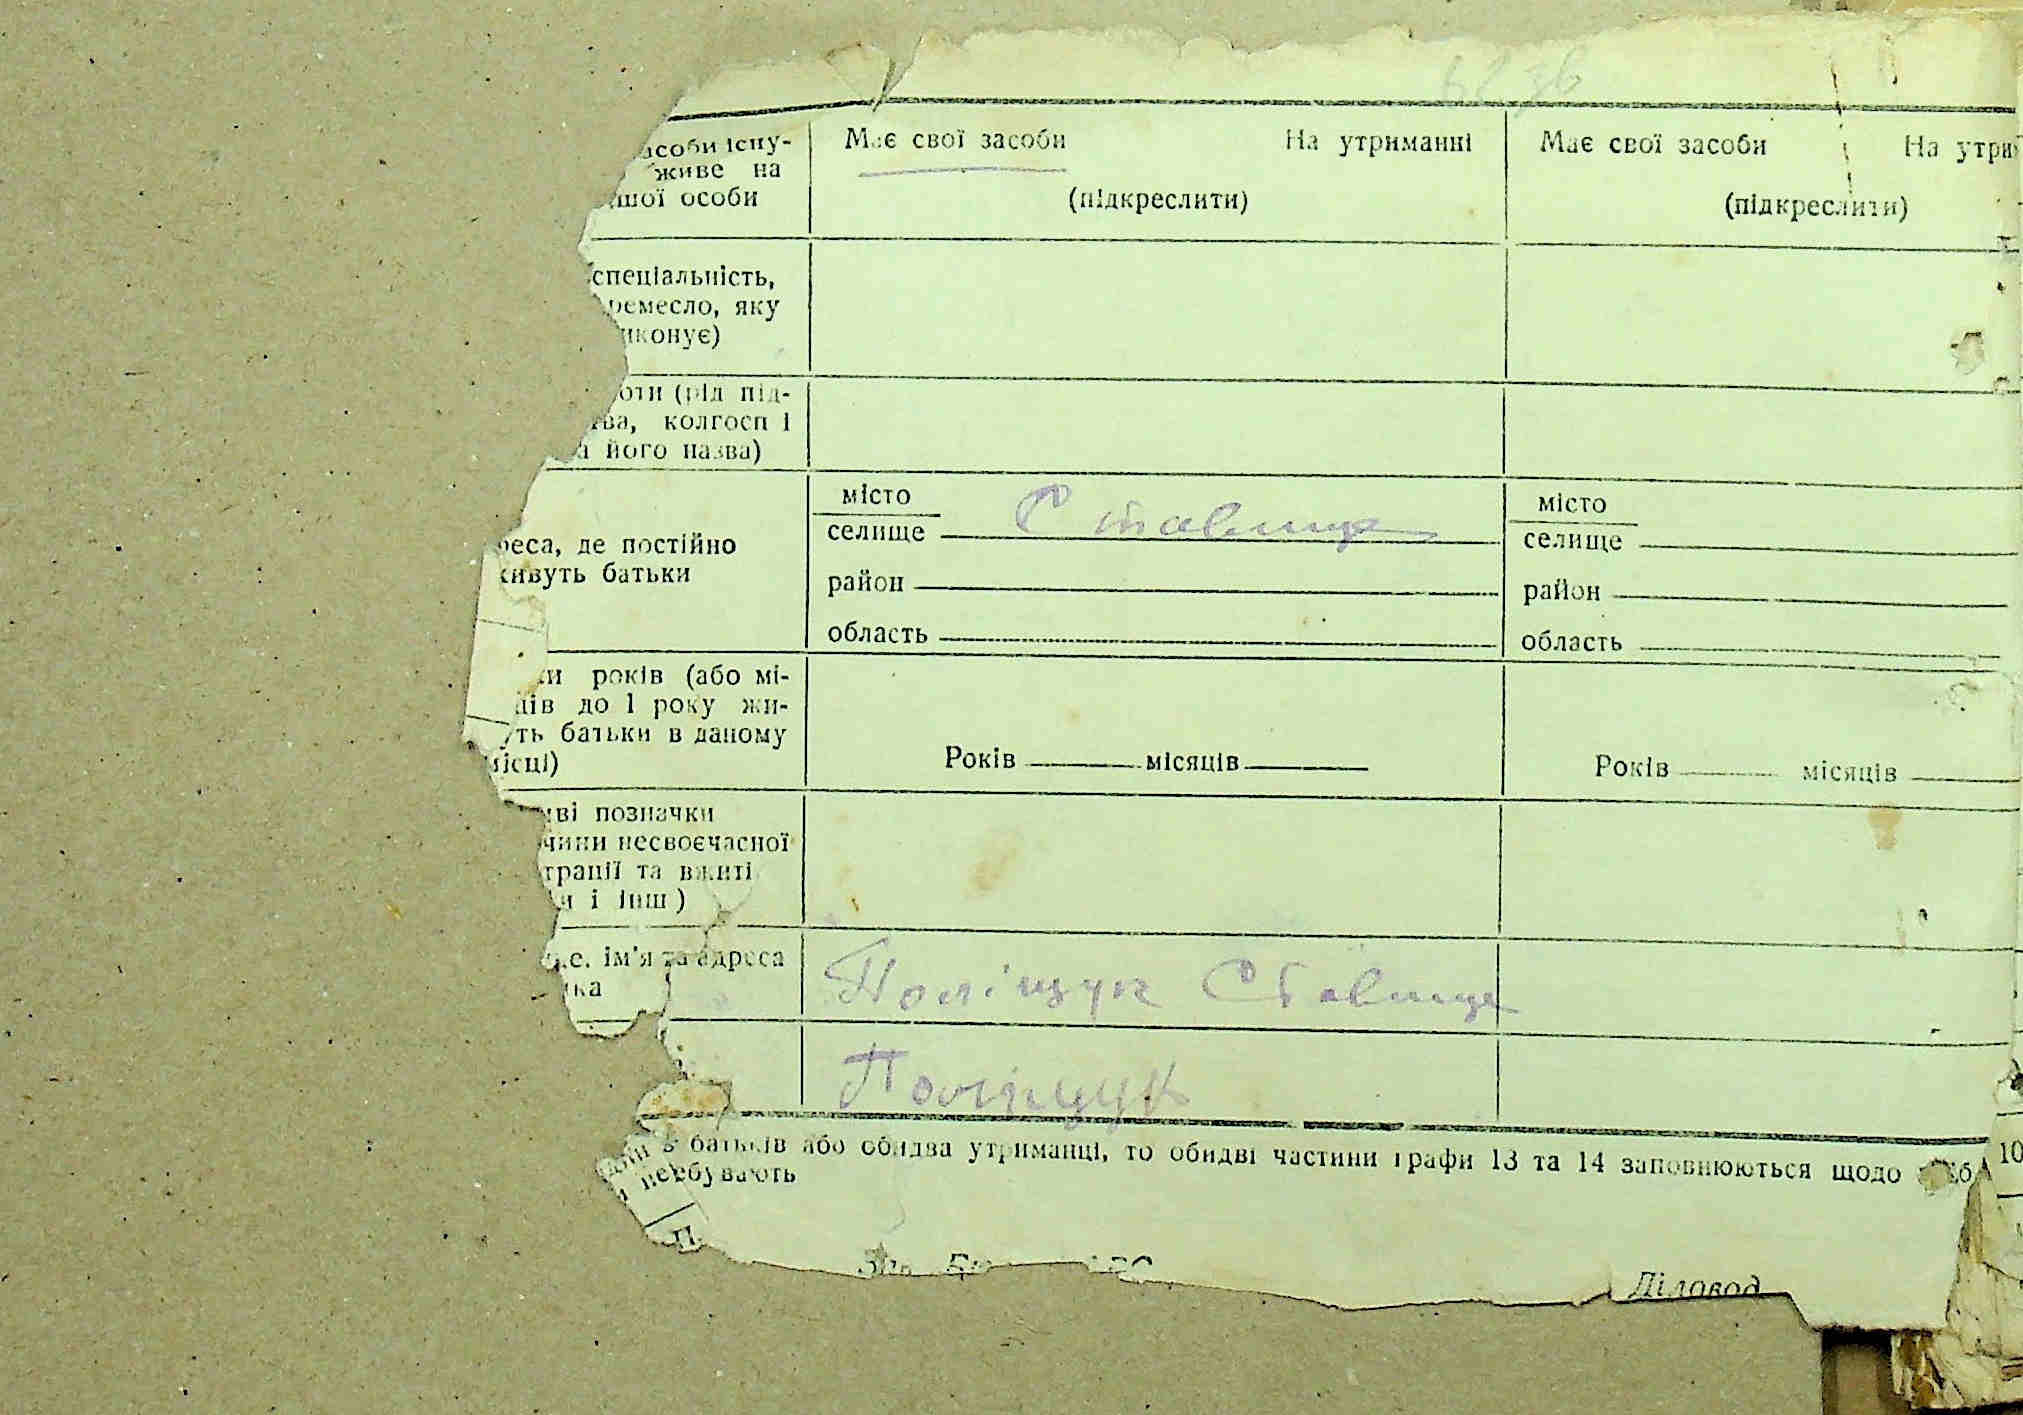 62 зв
асоби існу-
живе на
шої особи
Має свої засоби На утриманні
(підкреслити)
Має свої засоби На утри
(підкреслити)
спеціальність,
ремесло, яку
иконує)
оти (рід під-
тва, колгосп і
а його назва)
реса, де постійно
живуть батьки
місто
селище Ставище
район
область
місто
селище
район
область
ки років (або мі-
ців до 1 року жи-
уть батьки в даному
місці)
Років місяців
Років місяців
иві позначки
чини несвоєчасної
трації та вжиті
и і інш)
ще, ім'я та адреса
ика
Поліщук Ставище
Поліщук
дин з батьків або обидва утриманці, то обидві частини графи 13 та 14 заповнюються щодо осіб
и перебувають
10
П
Діловод